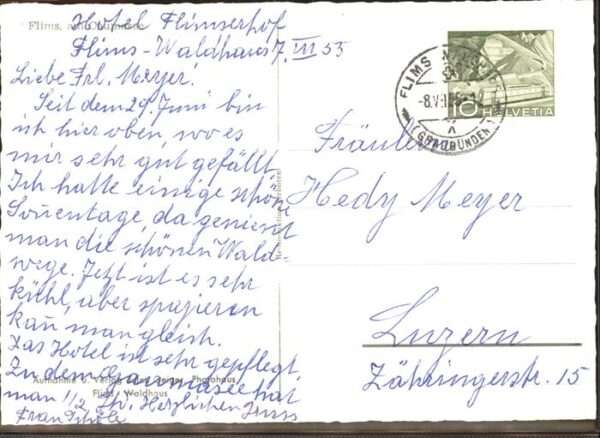 Flims,
Hotel Flimserhof
Flims-Waldhaus 7. VII 55
Liebe Frl. Meyer.
Seit dem 29. Juni bin
ich hier oben, wo es
mir sehr gut gefällt
Ich hatte einige schöne
Sonnentage, da geniesst
man die schönen Wald-
wege. Jetzt ist es sehr
kühl, aber spazieren
kann man gleich.
Das Hotel ist sehr gepflegt
Zu dem Caumasee hat
man 1/2 Herzlichen Gruss
Frau
Aufnahme u. Verlag Photohaus
Flims-Waldhaus
FLIMS WALDHAUS
-8.VII
(GRAUBÜNDEN)
10 HELVETIA
Fräulein
Hedy Meyer
Luzern
Zähringerstr. 15